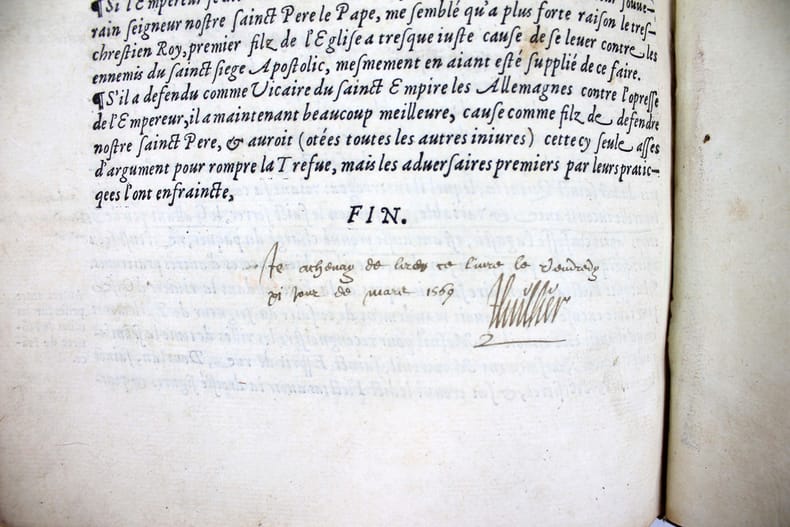 ¶Si l'Empereur
rain seigneur nostre sainct Pere le Pape, me semblé qu'a plus forte raison le tres-
chrestien Roy, premier filz de l'Eglise a tresque iuste cause de se leuer contre les
ennemis du sainct siege Apostolic, mesmement en aiant esté supplié de ce faire.
¶S'il a defendu comme Vicaire du sainct Empire les Allemagnes contre l'opresse
de l'Empereur, il a maintenant beaucoup meilleure, cause comme filz de defendre
nostre sainct Pere, & auroit (otées toutes les autres iniures) cettecy seule asses
d'argument pour rompre la Trefue, mais les aduersaires premiers par leurs pratic-
qees l'ont enfraincte,
FIN.
Je achevay de lire ce livre le vendredy
xj jour de mars 1569